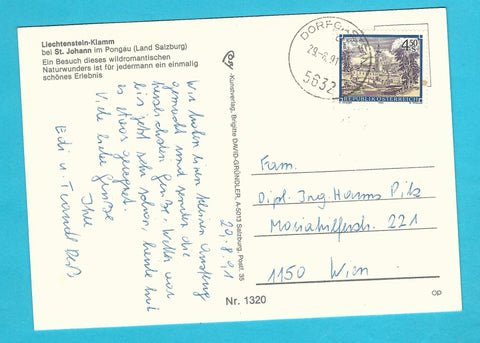 Liechtenstein-Klamm
bei St. Johann im Pongau (Land Salzburg)
Ein Besuch dieses wildromantischen
Naturwunders ist für jedermann ein einmalig
schönes Erlebnis
29.8.91
Wir haben einen kleinen Ausflug
gemacht und senden die
herzlichsten Grüße. Wetter war
bis jetzt sehr schön, heute hat
es etwas geregnet.
Viele liebe Grüße
Ihre
Edi u.
-Kunstverlag, Brigitte DAVID-GRÜNDLER, A-5013 Salzburg, Postf. 35
Nr. 1320
DORFG
29.-8.91
5632
4.50
REPUBLIK ÖSTERREICH
Fam.
Dipl. Ing. Hanns Pitz
Mariahilferstr. 221
1150 Wien
op